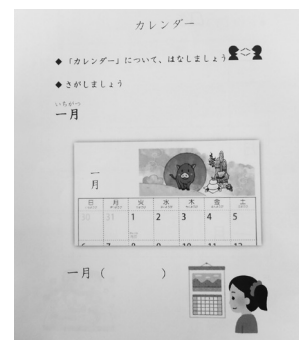 カレンダー
◆ 「カレンダー」について、はなしましょう
◆ さがしましょう
いちがつ
一月
一月
日 月 火 水 木 金 土
30 31 1 2 3 4 5
6 7 8 9 10 11 12
一月（　　　　）